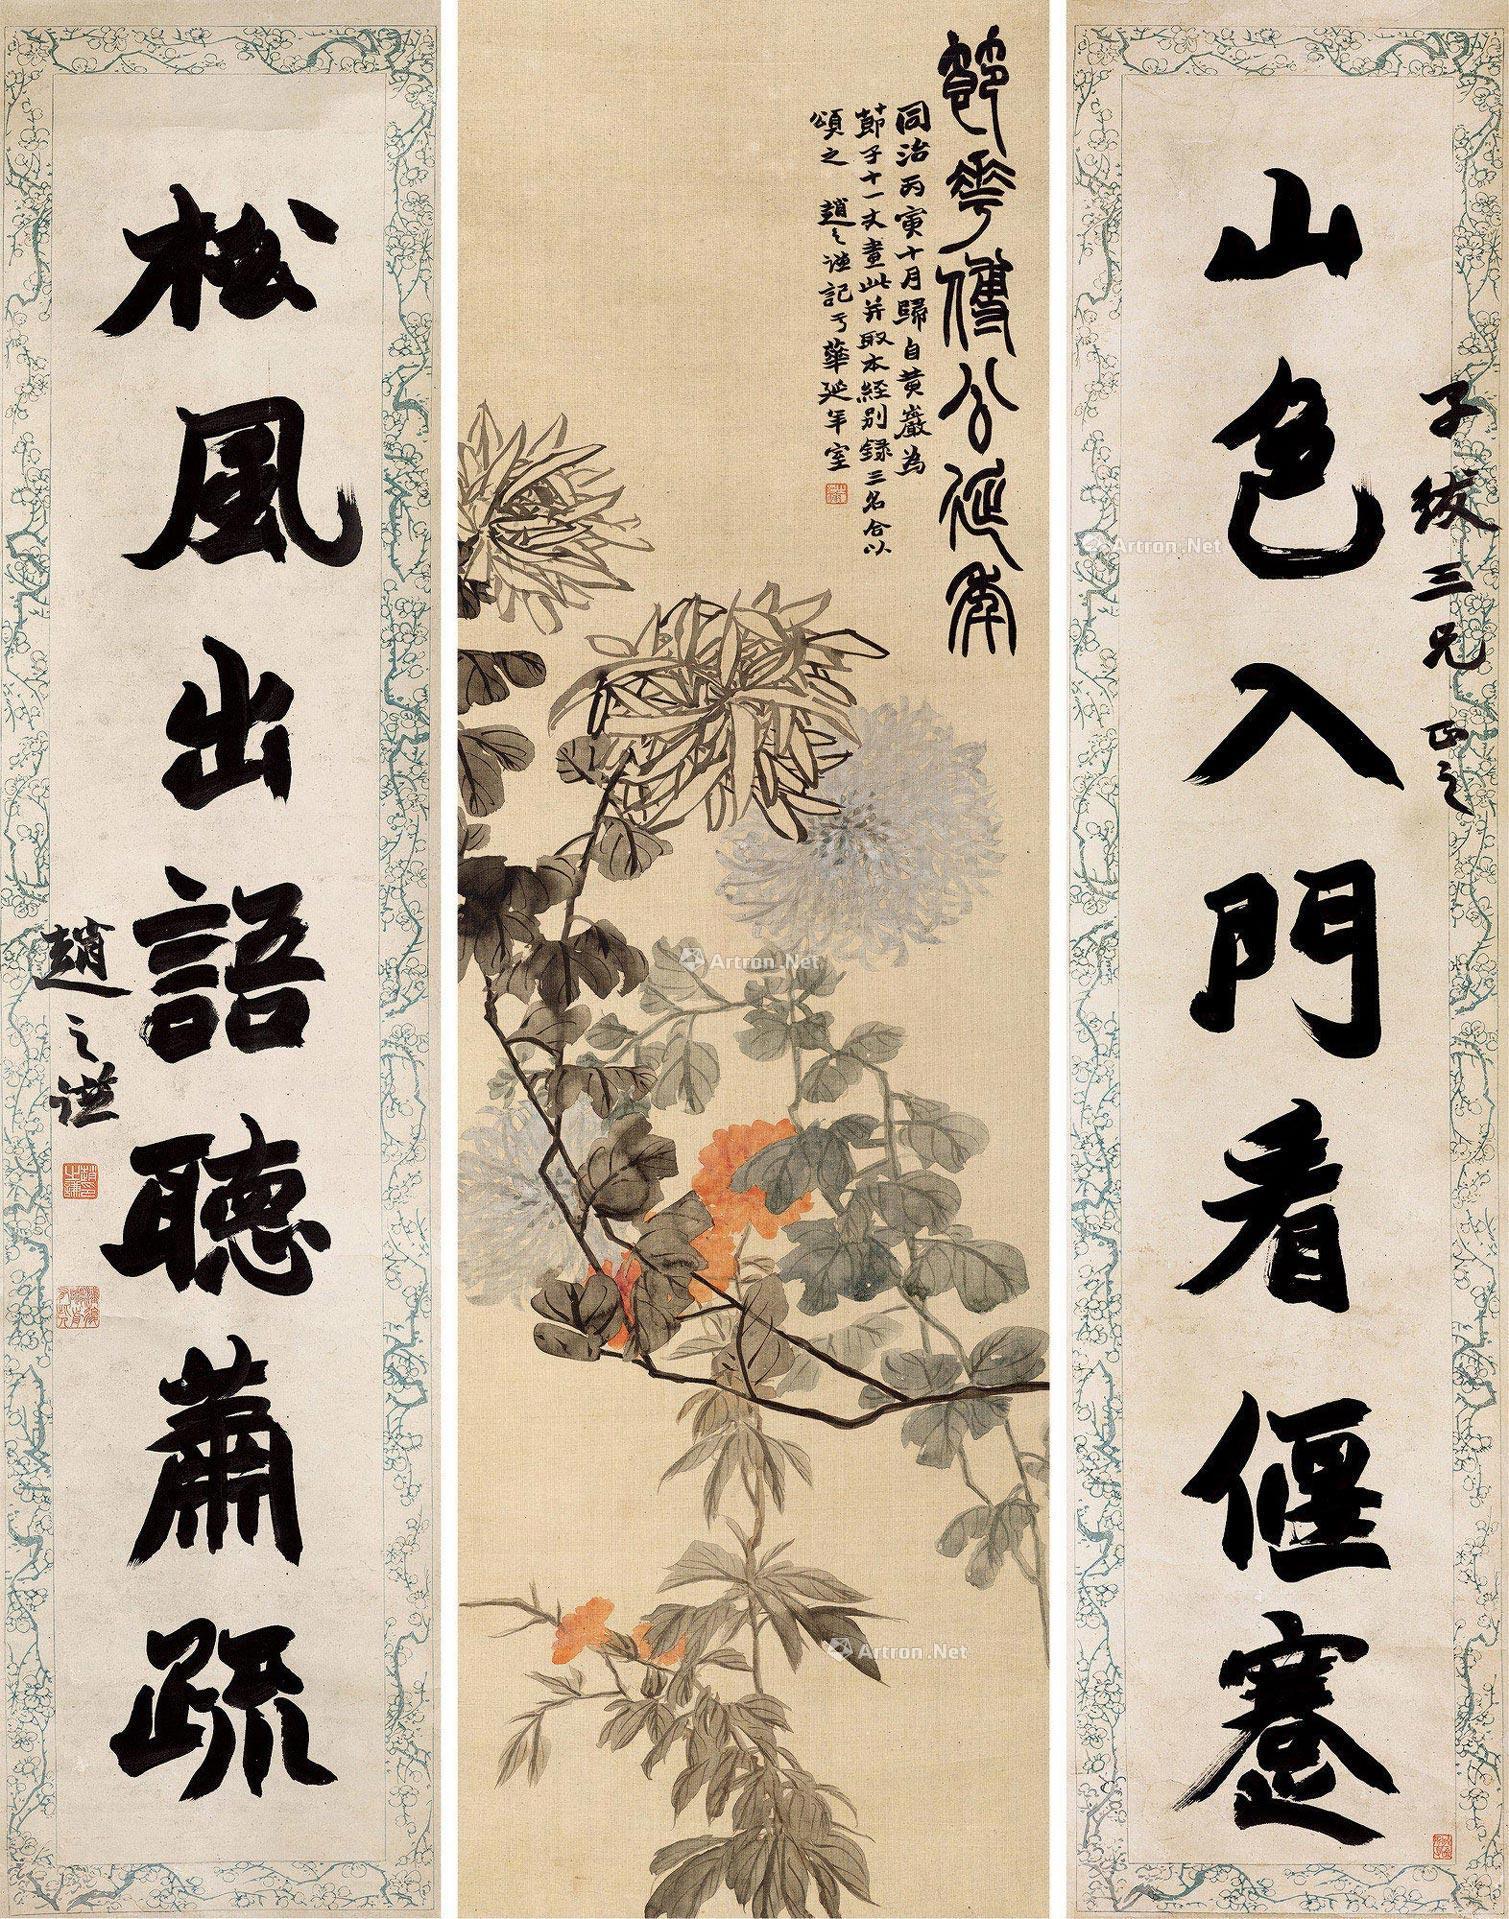 山色入門看偃蹇
子紱三兄 正之
節華傅公延年
同治丙寅十月歸自黃巖為
節子十一丈畫此并取本經別錄三名合以
頌之 趙之謙記于華延年室
松風出語聽蕭疏
趙之謙
Artron.Net
Artron.Net
Artron.Net